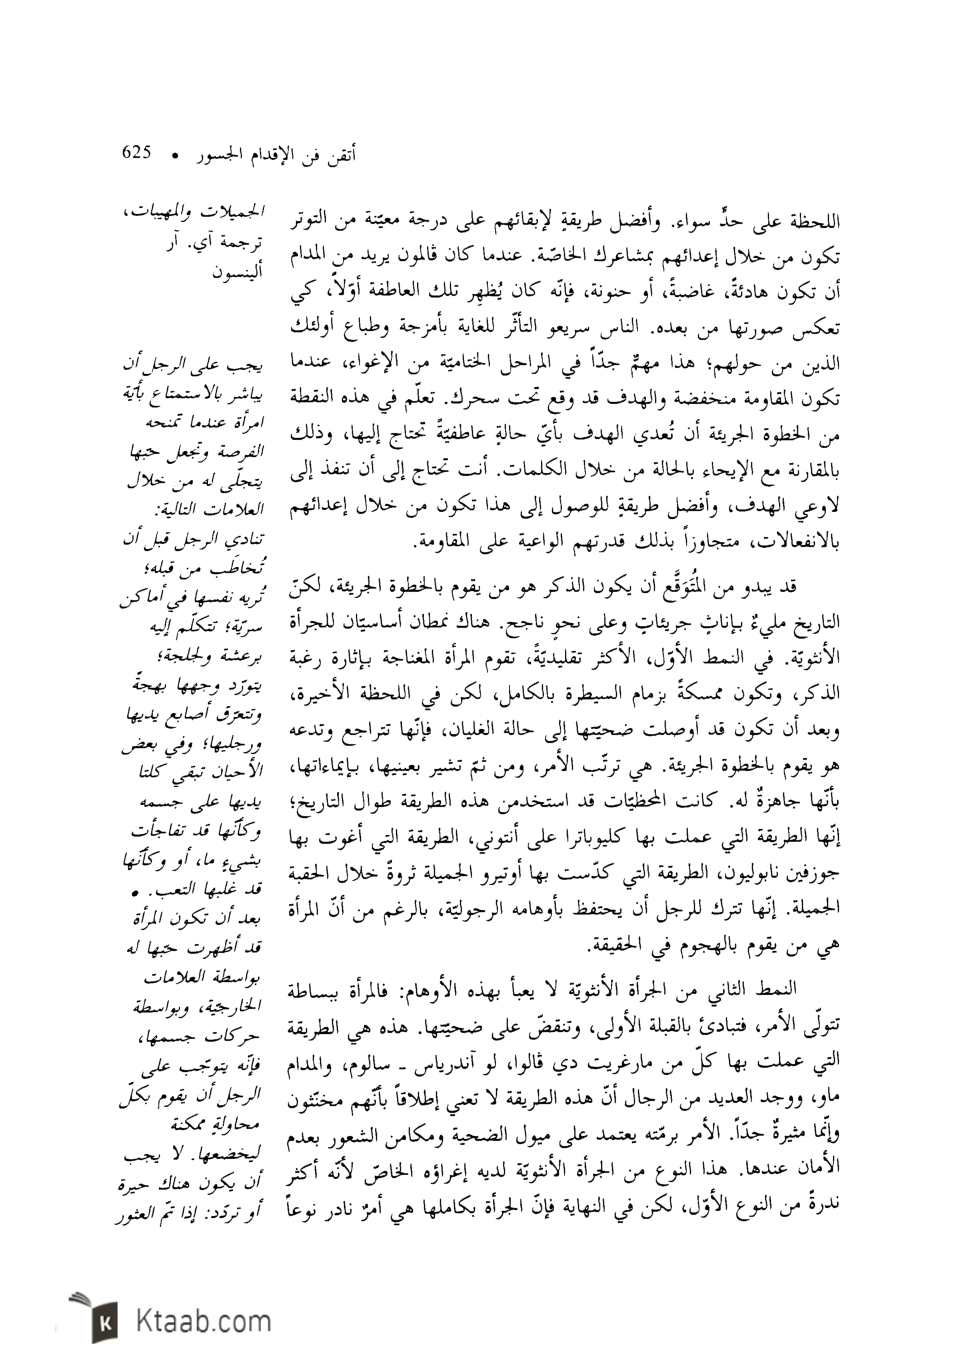 أتقن فن الإقدام الجسور • 625
اللحظة على حدٍّ سواء. وأفضل طريقةٍ لإبقائهم على درجة معيّنة من التوتر
تكون من خلال إعدائهم بمشاعرك الخاصّة. عندما كان ڤالمون يريد من المدام
أن تكون هادئةً، غاضبةً، أو حنونة، فإنّه كان يُظهِر تلك العاطفة أوّلاً، كي
تعكس صورتها من بعده. الناس سريعو التأثّر للغاية بأمزجة وطباع أولئك
الذين من حولهم؛ هذا مهمٌّ جدّاً في المراحل الختاميّة من الإغواء، عندما
تكون المقاومة منخفضة والهدف قد وقع تحت سحرك. تعلّم في هذه النقطة
من الخطوة الجريئة أن تُعدي الهدف بأيّ حالةٍ عاطفيّةً تحتاج إليها، وذلك
بالمقارنة مع الإيحاء بالحالة من خلال الكلمات. أنت تحتاج إلى أن تنفذ إلى
لاوعي الهدف، وأفضل طريقةٍ للوصول إلى هذا تكون من خلال إعدائهم
بالانفعالات، متجاوزاً بذلك قدرتهم الواعية على المقاومة.
قد يبدو من المُتَوَقَّع أن يكون الذكر هو من يقوم بالخطوة الجريئة، لكنّ
التاريخ مليءٌ بإناثٍ جريئاتٍ وعلى نحوٍ ناجح. هناك نمطان أساسيّان للجرأة
الأنثويّة. في النمط الأوّل، الأكثر تقليديّةً، تقوم المرأة المغناجة بإثارة رغبة
الذكر، وتكون ممسكةً بزمام السيطرة بالكامل، لكن في اللحظة الأخيرة،
وبعد أن تكون قد أوصلت ضحيّتها إلى حالة الغليان، فإنّها تتراجع وتدعه
هو يقوم بالخطوة الجريئة. هي ترتّب الأمر، ومن ثمّ تشير بعينيها، بإيماءاتها،
بأنّها جاهزةٌ له. كانت المحظيّات قد استخدمن هذه الطريقة طوال التاريخ؛
إنّها الطريقة التي عملت بها كليوباترا على أنتوني، الطريقة التي أغوت بها
جوزفين نابوليون، الطريقة التي كدّست بها أوتيرو الجميلة ثروةً خلال الحقبة
الجميلة. إنّها تترك للرجل أن يحتفظ بأوهامه الرجوليّة، بالرغم من أنّ المرأة
هي من يقوم بالهجوم في الحقيقة.
النمط الثاني من الجرأة الأنثويّة لا يعبأ بهذه الأوهام: فالمرأة ببساطة
تتولّى الأمر، فتبادئ بالقبلة الأولى، وتنقضّ على ضحيّتها. هذه هي الطريقة
التي عملت بها كلّ من مارغريت دي ڤالوا، لو آندرياس - سالوم، والمدام
ماو، ووجد العديد من الرجال أنّ هذه الطريقة لا تعني إطلاقاً بأنّهم مخنّثون
وإنّما مثيرةٌ جدّاً. الأمر برمّته يعتمد على ميول الضحية ومكامن الشعور بعدم
الأمان عندها. هذا النوع من الجرأة الأنثويّة لديه إغراؤه الخاصّ لأنّه أكثر
ندرةً من النوع الأوّل، لكن في النهاية فإنّ الجرأة بكاملها هي أمرٌ نادر نوعاً
الجميلات والمهيبات،
ترجمة آي. آر
ألينسون
يجب على الرجل أن
يباشر بالاستمتاع بأيّة
امرأة عندما تمنحه
الفرصة وتجعل حبّها
يتجلّى له من خلال
العلامات التالية:
تنادي الرجل قبل أن
تُخاطَب من قبله؛
تُريه نفسها في أماكن
سريّة؛ تتكلّم إليه
برعشة ولجلجة؛
يتورّد وجهها بهجةً
وتتعرّق أصابع يديها
ورجليها؛ وفي بعض
الأحيان تبقي كلتا
يديها على جسمه
وكأنّها قد تفاجأت
بشيءٍ ما، أو وكأنّها
قد غلبها التعب. •
بعد أن تكون المرأة
قد أظهرت حبّها له
بواسطة العلامات
الخارجيّة، وبواسطة
حركات جسمها،
فإنّه يتوجّب على
الرجل أن يقوم بكلّ
محاولةٍ ممكنة
ليخضعها. لا يجب
أن يكون هناك حيرة
أو تردّد: إذا تمّ العثور
Ktaab.com